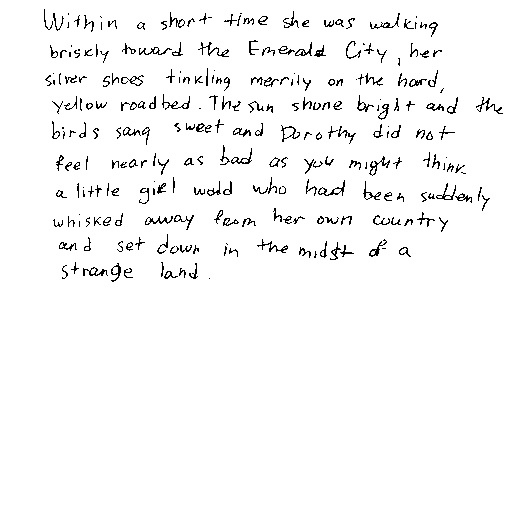 Within a short time she was walking
briskly toward the Emerald City, her
silver shoes tinkling merrily on the hard,
yellow roadbed. The sun shone bright and the
birds sang sweet and Dorothy did not
feel nearly as bad as you might think
a little girl would who had been suddenly
whisked away from her own country
and set down in the midst of a
strange land.